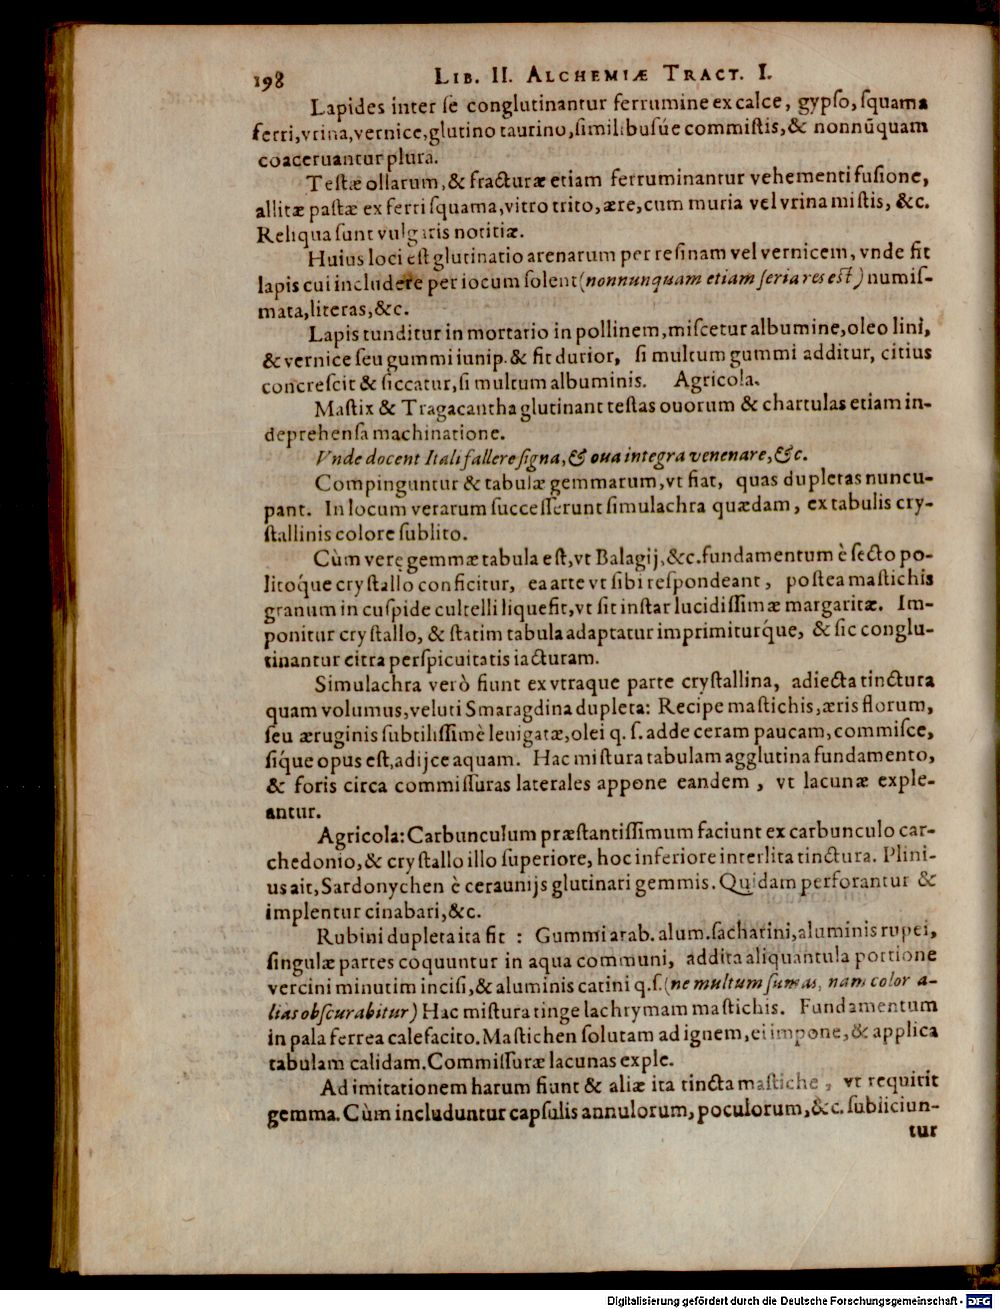 198 LIB. II. ALCHEMIÆ TRACT. I.
Lapides inter ſe conglutinantur ferrumine ex calce, gypſo, ſquama
ferri, vrina, vernice, glutino taurino, ſimilibuſúe commiſtis, & nonnūquam
coaceruantur plura.
Teſtæ ollarum, & fracturæ etiam ferruminantur vehementi fuſione,
allitæ paſtæ ex ferri ſquama, vitro trito, ære, cum muria vel vrina miſtis, &c.
Reliqua ſunt vulgaris notitiæ.
Huius loci eſt glutinatio arenarum per reſinam vel vernicem, vnde fit
lapis cui includere per iocum ſolent (nonnunquam etiam ſeria res eſt) numiſ-
mata, literas, &c.
Lapis tunditur in mortario in pollinem, miſcetur albumine, oleo lini,
& vernice ſeu gummi iunip. & fit durior, ſi multum gummi additur, citius
concreſcit & ſiccatur, ſi multum albuminis. Agricola.
Maſtix & Tragacantha glutinant teſtas ouorum & chartulas etiam in-
deprehenſa machinatione.
Vnde docent Itali fallere ſigna, & oua integra venenare, &c.
Compinguntur & tabulæ gemmarum, vt fiat, quas dupletas nuncu-
pant. In locum verarum ſucceſſerunt ſimulachra quædam, ex tabulis cry-
ſtallinis colore ſublito.
Cùm verę gemmæ tabula eſt, vt Balagij, &c. fundamentum è ſecto po-
litoq́ue cryſtallo conficitur, ea arte vt ſibi reſpondeant, poſtea maſtichis
granum in cuſpide cultelli liquefit, vt ſit inſtar lucidiſſimæ margaritæ. Im-
ponitur cryſtallo, & ſtatim tabula adaptatur imprimiturq́ue, & ſic conglu-
tinantur citra perſpicuitatis iacturam.
Simulachra verò fiunt ex vtraque parte cryſtallina, adiecta tinctura
quam volumus, veluti Smaragdina dupleta: Recipe maſtichis, æris florum,
ſeu æruginis ſubtiliſſimè leuigatæ, olei q. ſ. adde ceram paucam, commiſce,
ſiq́ue opus eſt, adijce aquam. Hac miſtura tabulam agglutina fundamento,
& foris circa commiſſuras laterales appone eandem, vt lacunæ exple-
antur.
Agricola: Carbunculum præſtantiſſimum faciunt ex carbunculo car-
chedonio, & cryſtallo illo ſuperiore, hoc inferiore interlita tinctura. Plini-
us ait, Sardonychen è ceraunijs glutinari gemmis. Quidam perforantur &
implentur cinabari, &c.
Rubini dupleta ita fit : Gummi arab. alum. ſacharini, aluminis rupei,
ſingulæ partes coquuntur in aqua communi, addita aliquantula portione
vercini minutim inciſi, & aluminis catini q. ſ. (ne multum ſumas, nam color a-
lias obſcurabitur) Hac miſtura tinge lachrymam maſtichis. Fundamentum
in pala ferrea calefacito. Maſtichen ſolutam ad ignem, ei impone, & applica
tabulam calidam. Commiſſuræ lacunas exple.
Ad imitationem harum fiunt & aliæ ita tincta maſtiche, vt requirit
gemma. Cùm includuntur capſulis annulorum, poculorum, &c. ſubiiciun-
tur
Digitalisierung gefördert durch die Deutsche Forschungsgemeinschaft - DFG